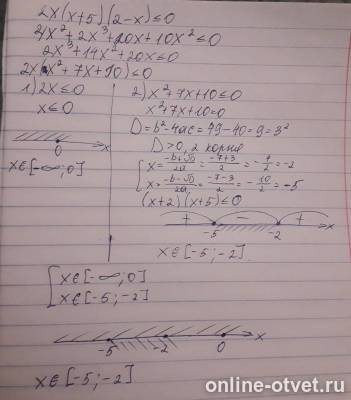 2x(x+5)(2-x)≤0
2)x²+2x³+20x+10x²≤0
2x³+14x²+20x≤0
2x(x²+7x+10)≤0
1) 2x≤0
x≤0
0 x
x∈[-∞;0]
2) x²+7x+10≤0
x²+7x+10=0
D=b²-4ac=49-40=9=3²
D>0, 2 корня
[x=(-b+√D)/2a=(-7+3)/2=-4/2=-2
[x=(-b-√D)/2a=(-7-3)/2=-10/2=-5
(x+2)(x+5)≤0
+ - +
-5 -2 x
x∈[-5;-2]
[x∈[-∞;0]
[x∈[-5;-2]
-5 -2 0 x
x∈[-5;-2]
online-otvet.ru